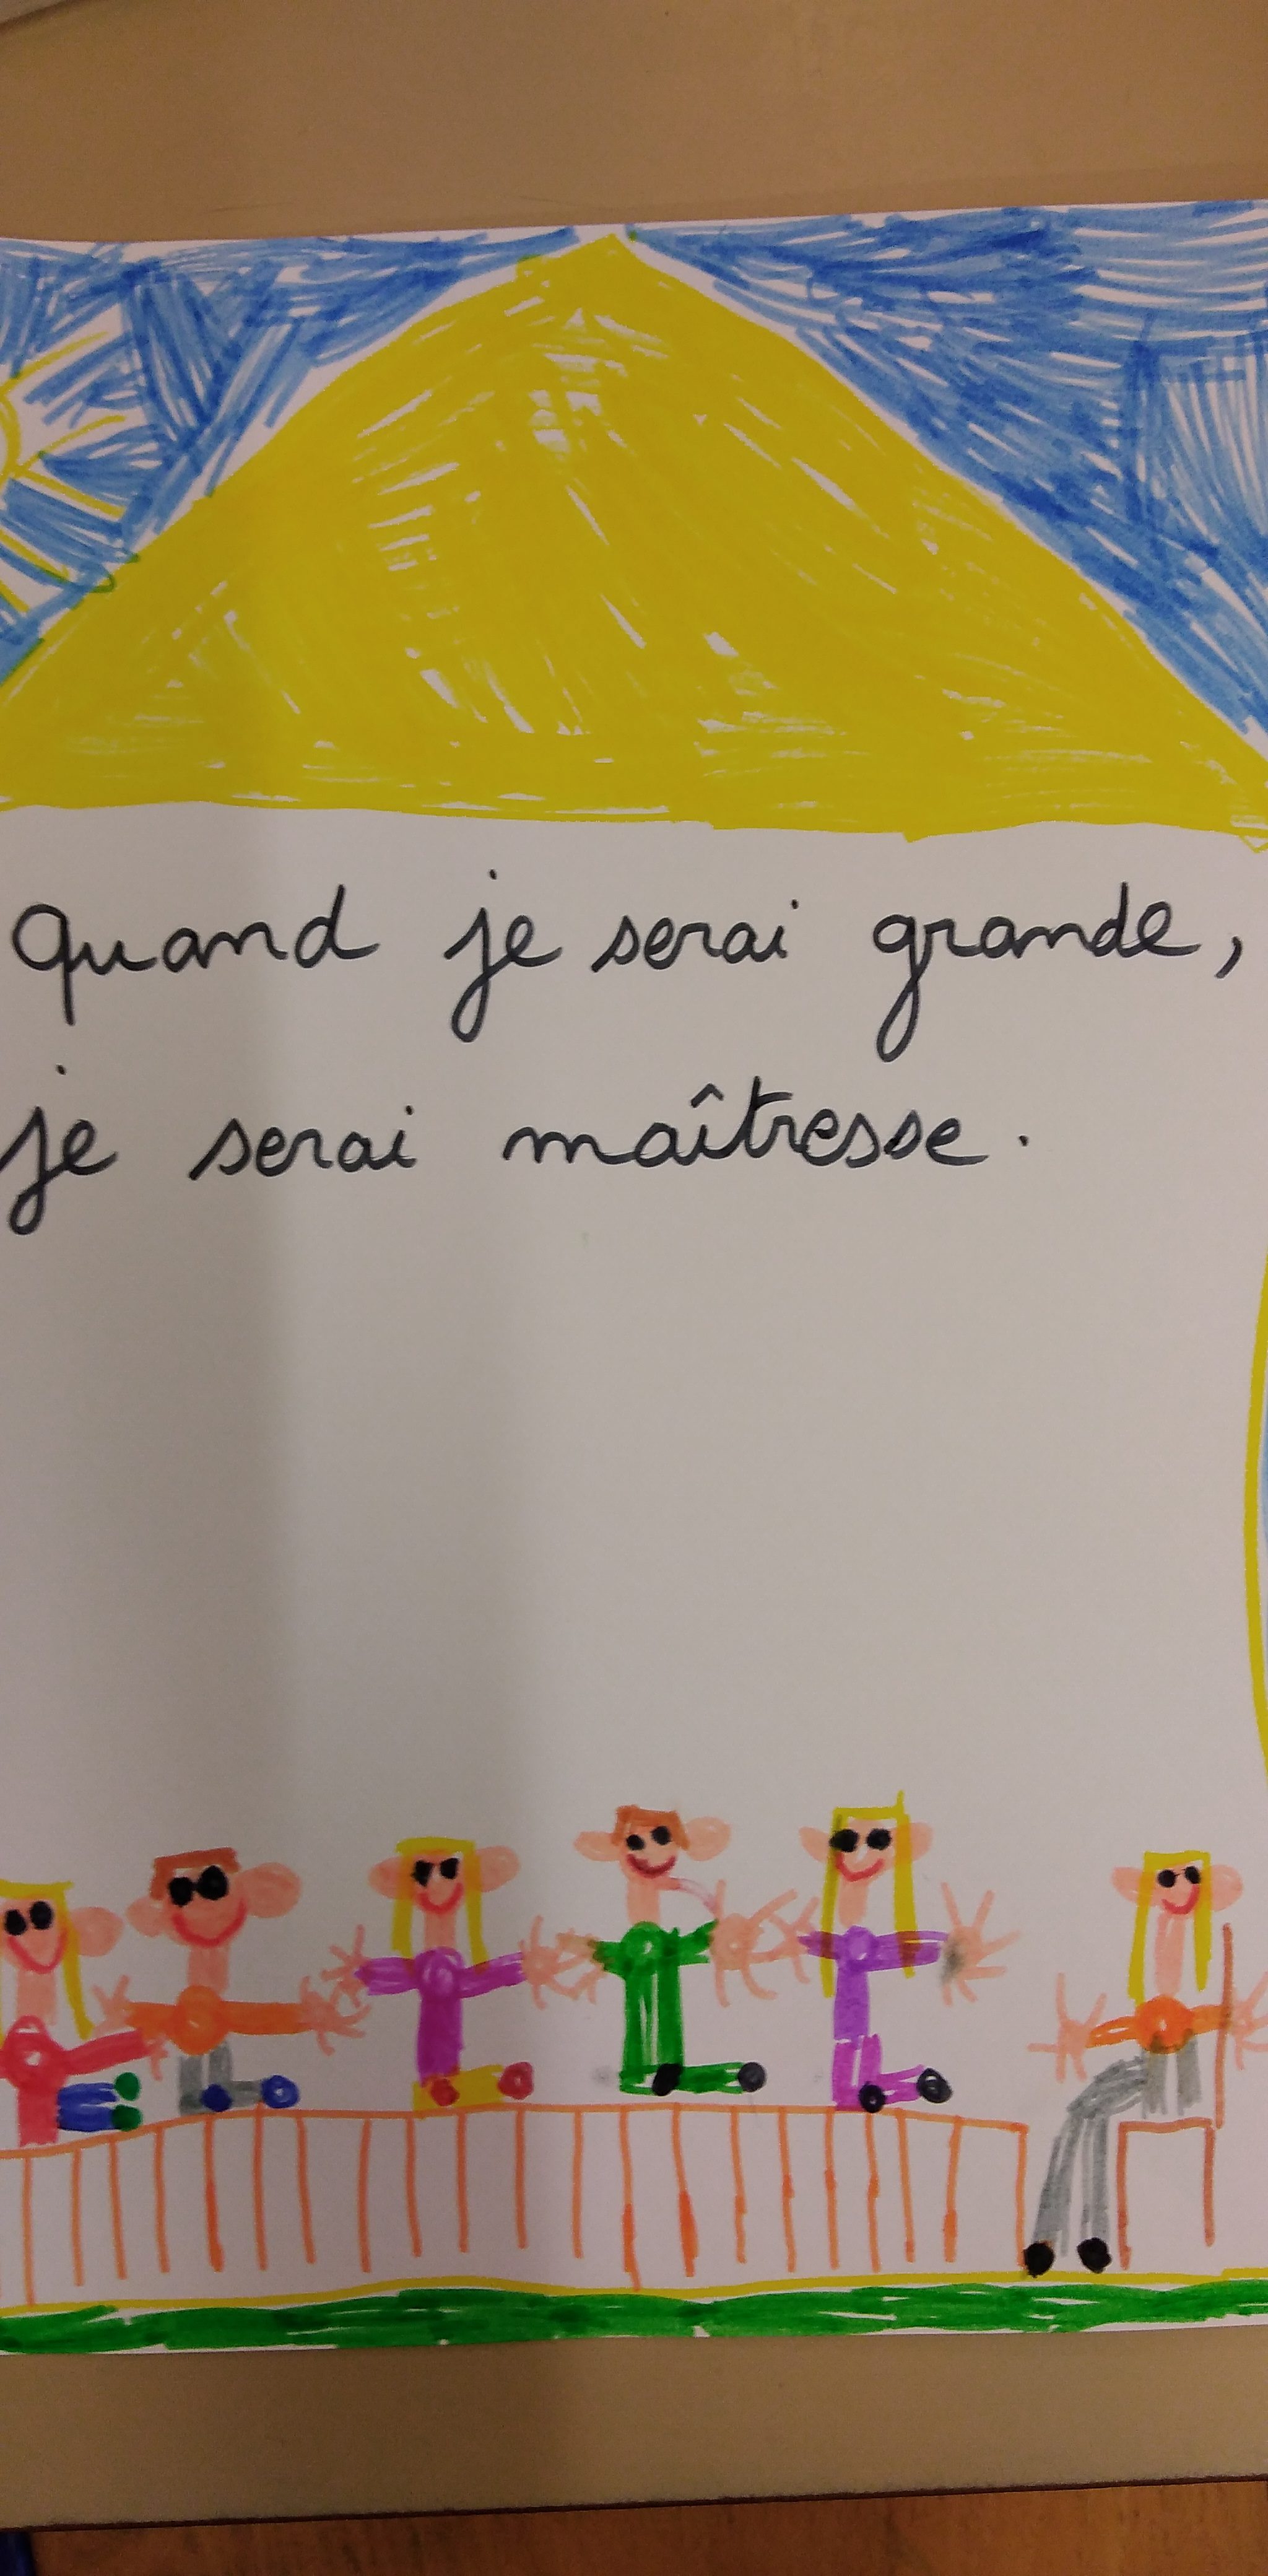 Quand je serai grande,
je serai maîtresse.